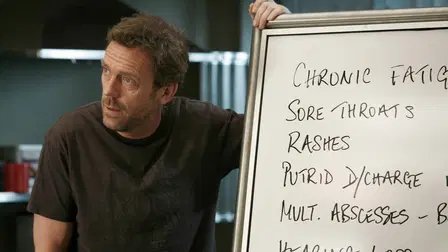 CHRONIC FATIG
SORE THROATS
RASHES
PUTRID D/CHARGE
MULT. ABSCESSES - B